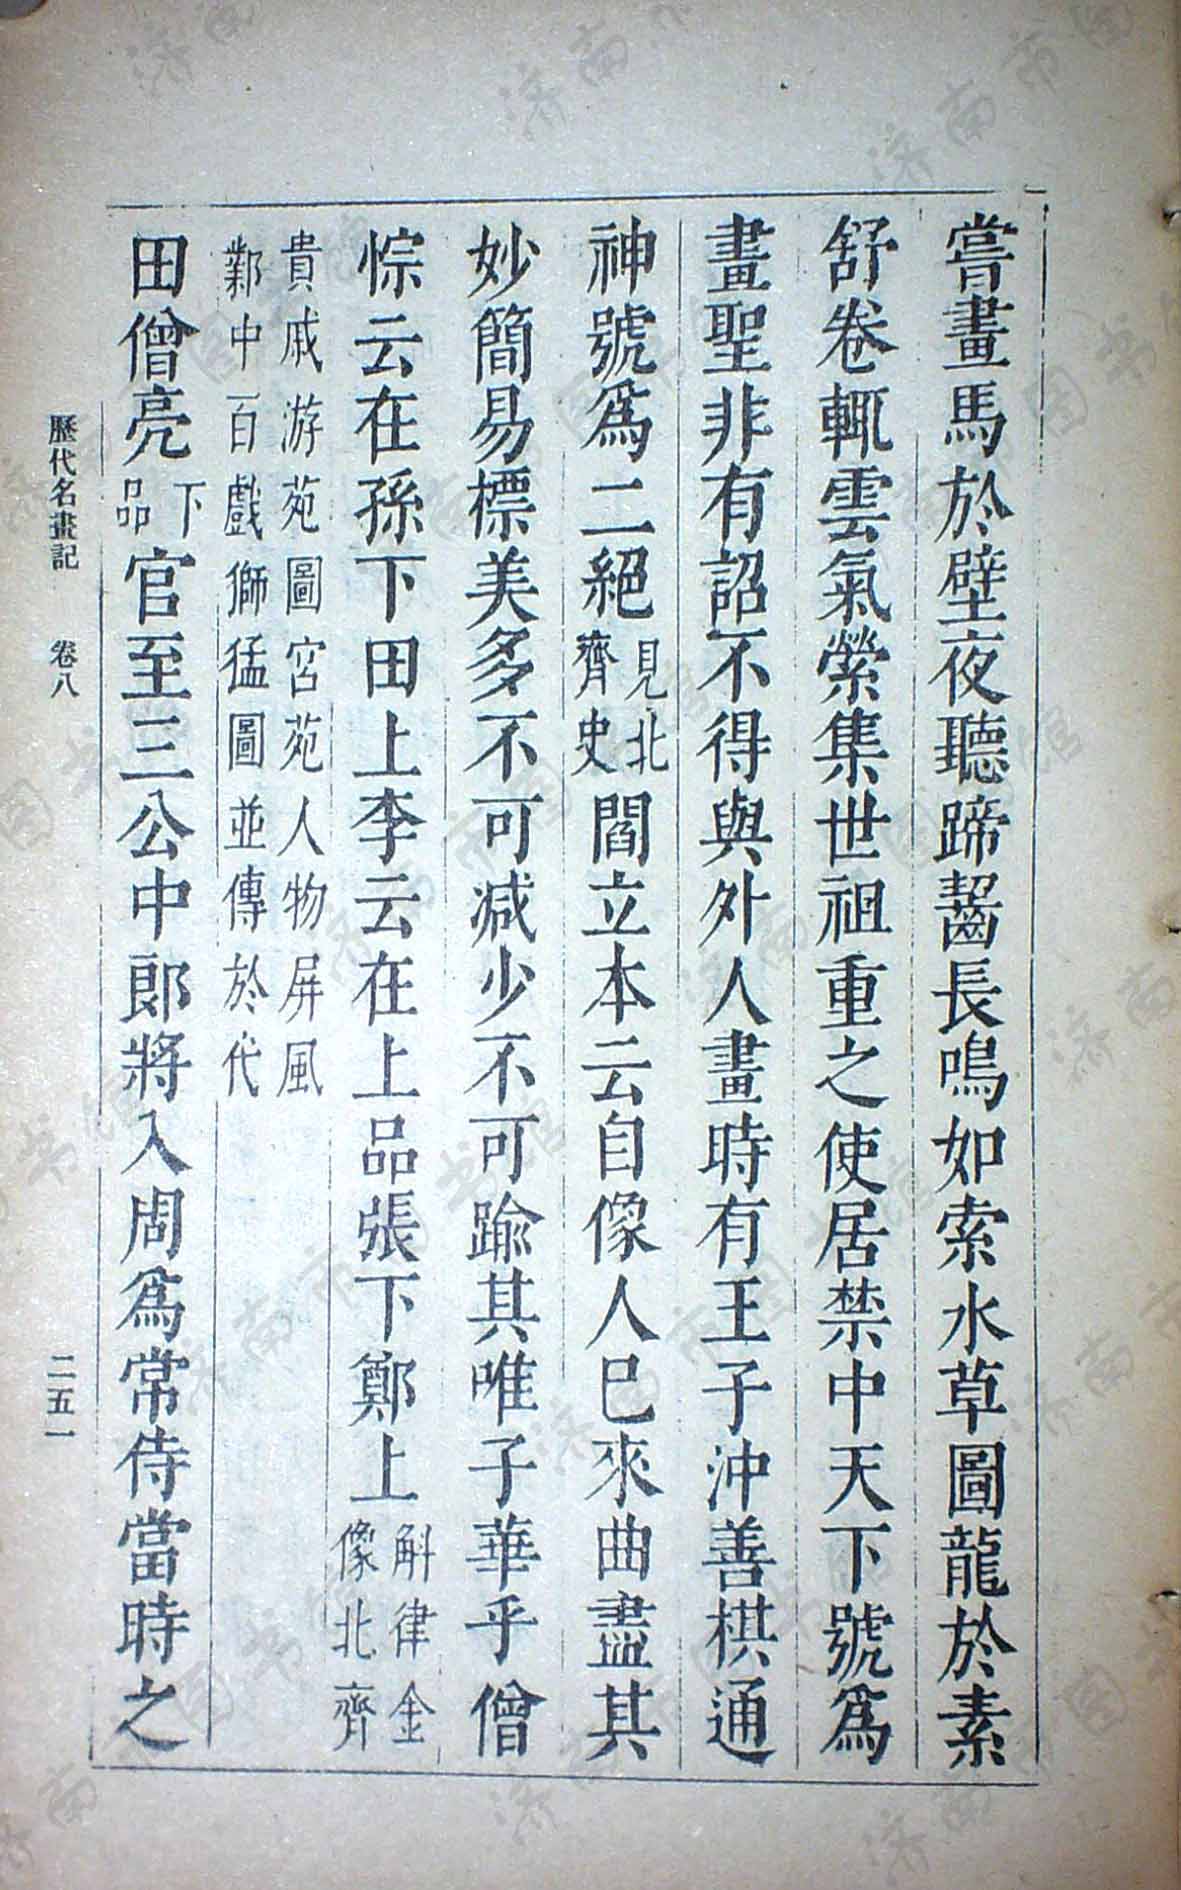 嘗畫馬於壁夜聽蹄齧長鳴如索水草圖龍於素
舒卷輒雲氣縈集世祖重之使居禁中天下號爲
畫聖非有詔不得與外人畫時有王子沖善棋通
神號爲二絕見北齊史閻立本云自像人巳來曲盡其
妙簡易標美多不可减少不可踰其唯子華乎僧
悰云在孫下田上李云在上品張下鄭上斛律金像北齊
貴戚游苑圖宮苑人物屏風
鄴中百戲獅猛圖並傳於代
田僧亮下品官至三公中郎將入周爲常侍當時之
歷代名畫記 卷八 二五一
济南市图书馆